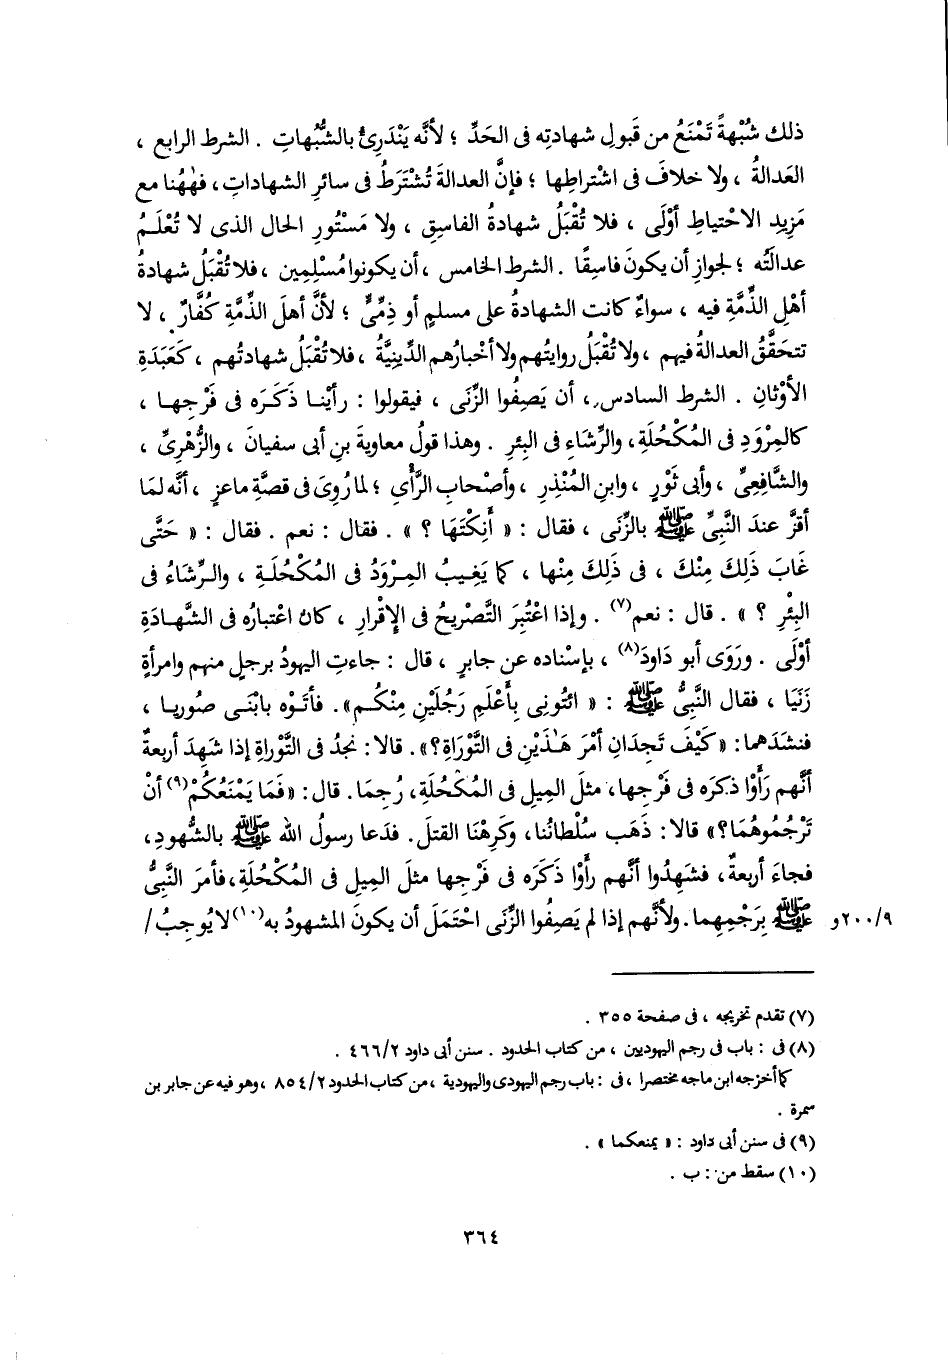 ذلك شُبْهةً تَمْنَعُ من قَبولِ شهادتِه فى الحَدِّ ؛ لأنَّه يَنْدَرِئُ بالشُّبُهاتِ . الشرط الرابع ،
العَدالةُ ، ولا خلافَ فى اشْتراطِها ؛ فإنَّ العدالةَ تُشْتَرَطُ فى سائرِ الشهاداتِ ، فهٰهُنا مع
مَزِيدِ الاحْتياطِ أوْلَى ، فلا تُقْبَلُ شهادةُ الفاسِقِ ، ولا مَسْتُورِ الحال الذى لا تُعْلَمُ
عدالَتُه ؛ لجوازِ أن يكونَ فاسِقًا . الشرط الخامس ، أن يكونوا مُسْلِمِين ، فلا تُقْبَلُ شهادةُ
أهْلِ الذِّمَّةِ فيه ، سواءٌ كانت الشهادةُ على مسلمٍ أو ذِمِّىٍّ ؛ لأنَّ أهلَ الذِّمَّةِ كُفَّارٌ ، لا
تتحَقَّقُ العدالةُ فيهم ، ولا تُقْبَلُ روايتُهم ولا أخْبارُهم الدِّينِيَّةُ ، فلا تُقْبَلُ شهادتُهم ، كَعَبَدَةِ
الأوْثانِ . الشرط السادس ، أن يَصِفُوا الزِّنَى ، فيقولوا : رأيْنا ذَكَرَه فى فَرْجِها ،
كالمِرْوَدِ فى المُكْحُلَةِ ، والرِّشَاءِ فى البِئرِ . وهذا قولُ معاويةَ بنِ أبى سفيانَ ، والزُّهْرِىِّ ،
والشَّافِعِىِّ ، وأبى ثَوْرٍ ، وابنِ المُنْذِرِ ، وأصْحابِ الرَّأْىِ ؛ لما رُوِىَ فى قصَّةِ ماعزٍ ، أنَّه لمَا
أقرَّ عندَ النَّبِىِّ ﷺ بالزِّنَى ، فقال : « أَنِكْتَهَا ؟ » . فقال : نعم . فقال : « حَتَّى
غَابَ ذَلِكَ مِنْكَ ، فى ذَلِكَ مِنْها ، كما يَغِيبُ المِرْوَدُ فى المُكْحُلَةِ ، والرِّشَاءُ فى
البِئْرِ ؟ » . قال : نعم(٧) . وإذا اعْتُبِرَ التَّصْريحُ فى الإقْرارِ ، كان اعْتبارُه فى الشَّهادَةِ
أوْلَى . ورَوَى أبو دَاودَ(٨) ، بإسْنادِه عن جابرٍ ، قال : جاءتِ اليهودُ برجلٍ منهم وامرأةٍ
زَنَيَا ، فقال النَّبِىُّ ﷺ : « ائتُونِى بِأَعْلَمِ رَجُلَيْنِ مِنْكُم » . فأتَوْه بابْنَى صُوريا ،
فنشَدَهما : « كَيْفَ تَجِدَانِ أمْرَ هَٰذَيْنِ فى التَّوْرَاةِ ؟ » . قالا : نجدُ فى التَّوْراةِ إذا شَهِدَ أربعةٌ
أنَّهم رَأَوْا ذكَرَه فى فَرْجِها ، مثلَ المِيلِ فى المُكْحُلَةِ ، رُجِمَا . قال : « فَمَا يَمْنَعُكُمْ(٩) أنْ
تَرْجُمُوهُمَا ؟ » قالا : ذَهَب سُلْطانُنا ، وكَرِهْنا القتلَ . فدَعا رسولُ اللهِ ﷺ بالشُّهودِ ،
فجاءَ أربعةٌ ، فشَهِدُوا أنَّهم رأَوْا ذَكَرَه فى فَرْجِها مثلَ المِيلِ فى المُكْحُلَةِ ، فأمرَ النَّبِىُّ
ﷺ بِرَجْمِهِما . ولأنَّهم إذا لم يَصِفُوا الزِّنَى احْتَمَلَ أن يكونَ المشهودُ به(١٠) لا يُوجِبُ /
٢٠٠/٩و
(٧) تقدم تخريجه ، فى صفحة ٣٥٥ .
(٨) فى : باب فى رجم اليهوديين ، من كتاب الحدود . سنن أبى داود ٤٦٦/٢ .
كما أخرجه ابن ماجه مختصرا ، فى : باب رجم اليهودى واليهودية ، من كتاب الحدود ٨٥٤/٢ ، وهو فيه عن جابر بن
سمرة .
(٩) فى سنن أبى داود : « يمنعكما » .
(١٠) سقط من : ب .
٣٦٤